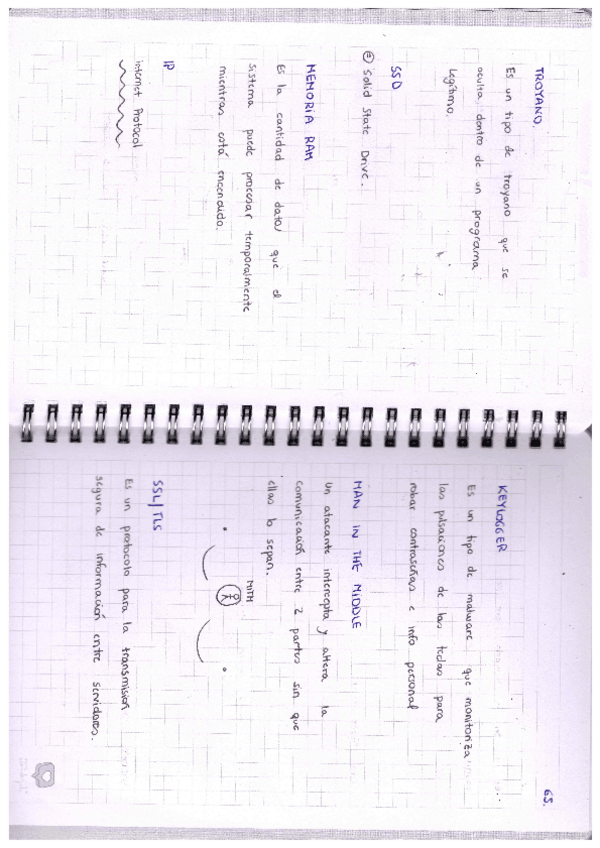 TROYANO.
Es un tipo de troyano que se
oculta dentro de un programa
legítimo.
SSD
Solid State Drive.
MEMORIA RAM
Es la cantidad de datos que el
sistema puede procesar temporalmente
mientras está encendido.
IP
Internet Protocol
65.
KEYLOGGER
Es un tipo de malware que monitoriza
las pulsaciones de las teclas para
robar contraseñas e info personal
MAN IN THE MIDDLE
Un atacante intercepta y altera la
comunicación entre 2 partes sin que
ellas lo sepan.
MITM
SSL/TLS
Es un protocolo para la transmisión
segura de información entre servidores.